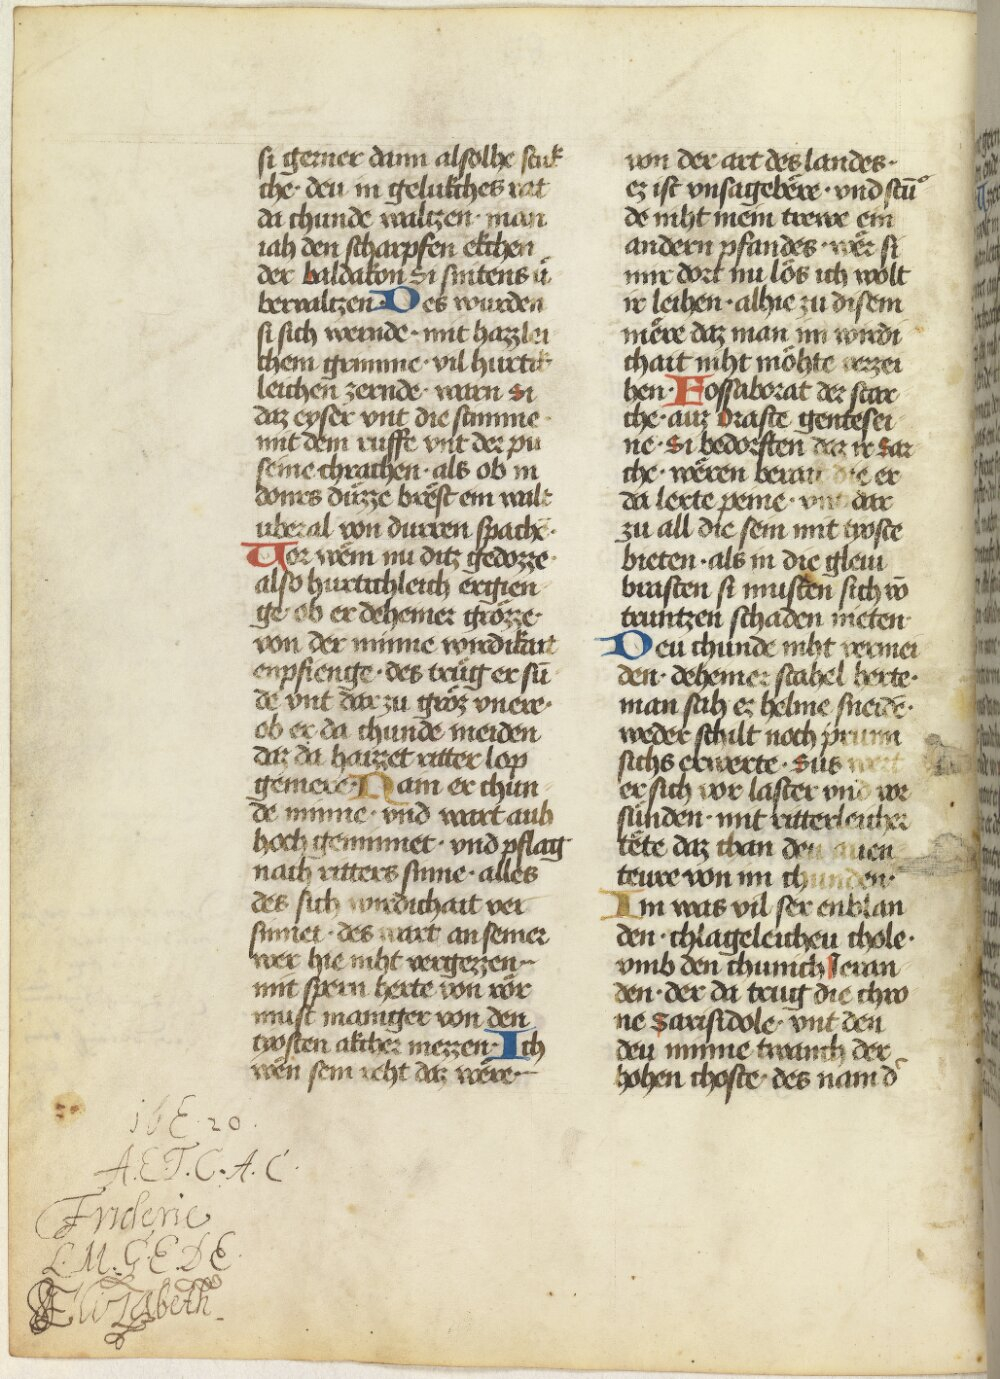 si gerner dann alsolhe stuk
che · deu in gelukches rat
da chunde waltzen · man
iah den scharpfen ekchen
der baldakon Si snitens ü
berwaltzen · Des wurden
si sich wernde · mit hazzlei
chem grimme · vil hurtik
leichen zernde · warn Si
daz eyser vnt die stimme ·
mit dem ruffe vnt der pu
seine chrachen · als ob in
donrs duzze brëst ein walt
uberal von durren spache ·
Vor wëm nu ditz gedozze ·
also hurtichleich ergien
ge · ob er dehemer grözze ·
von der minne wirdikait
enpfienge · des trüg er sǖ
de vnt dar zu gröz vnere ·
ob er da chunde meiden
daz da haizzet ritter lop
gemere · Nain er chun
de minne · vnd wart auh
hoch geminnet · vnd pflag
nach ritters sinne · alles
des sich wirdichait ver
sinnet · des wart an seiner
wer hie niht vergezzen ·
mit spern herte von rör
must maniger von den
trosten akcher mezzen · Ich
wën sein reht daz wëre ·
von der art des landes ·
ez ist vnsagebëre · vnd stū°
de niht mein trewe ein
andern pfandes · wër si
mir dort nu lös ich wolt
ir leihen · alhie zu disem
mëre daz man im wirdi
chait niht möhte verzei
hen · Fossaborat der star
che · auz Praste gentesei
ne · Si bedorften daz ir Sar
che · wëren berait die er
da lerte peine · vnt dar
zu all die sein mit troste
bieten · als in die gleui
brasten si musten sich vō
truntzen schaden nieten
Deu chunde niht vermei
den · dehemer stahel herte ·
man sah ez helme sneide ·
weder schilt noch prunn
sichs erwerte · Sus wert
er sich vor laster vnd vor
sünden · mit ritterleicher
tëte daz chan deu auen
teure von im chunden ·
Im was vil ser enblan
den · chlageleicheu chole ·
vmb den chunich Ieran
den · der da trug die chro
ne Sarisidole · vnt den
deu minne twanch der
hohen choste · des nam d̄
16 E 20 ·
A.E.T.C.A.C ·
Frideric
L.M.G.E.D.E ·
Elizabeth